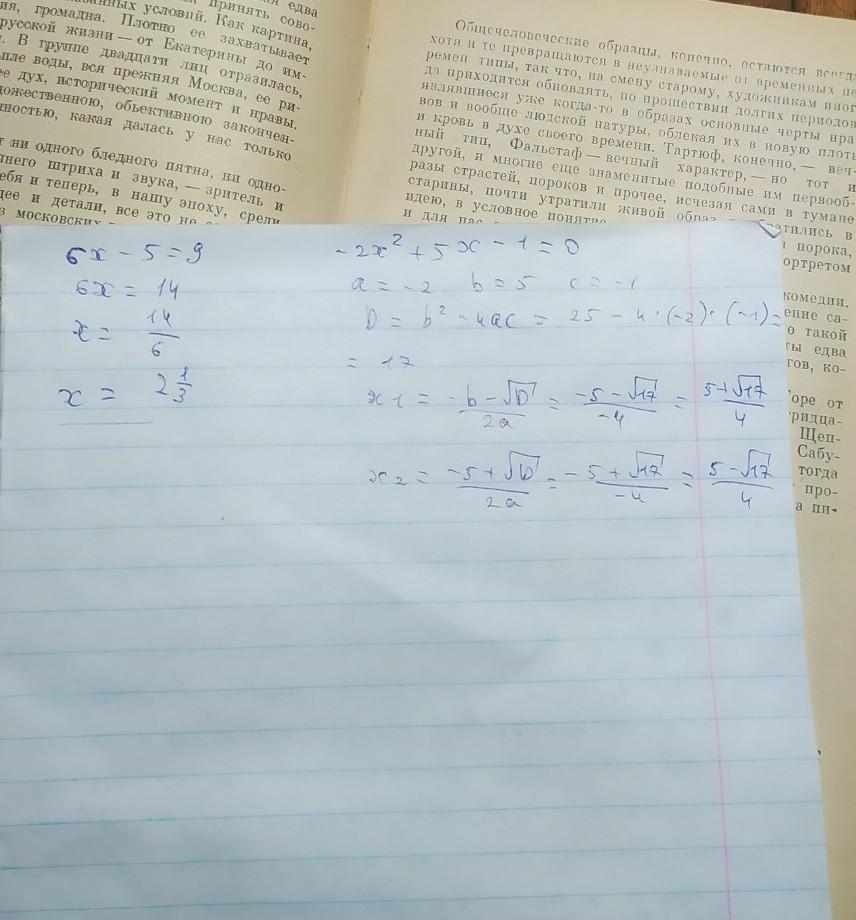 едва
принять сово-
условий. Как картина,
громадна. Плотно ее захватывает
русской жизни — от Екатерины до им-
В группе двадцати лиц отразилась,
воды, вся прежняя Москва, ее ри-
дух, исторический момент и нравы.
объективною закончен-
какая далась у нас только
ни одного бледного пятна, ни одно-
штриха и звука, — зритель и
и теперь, в нашу эпоху, среди
и детали, все это не
московских
Общечеловеческие образцы, конечно, остаются
хотя и те превращаются в неузнаваемые от временных
типы, так что, на смену старому, художникам
приходится обновлять, по прошествии долгих периодов
являвшиеся уже когда-то в образах основные черты
и вообще людской натуры, облекая их в новую плоть
и кровь в духе своего времени. Тартюф, конечно, — веч-
ный тип, Фальстаф — вечный характер, — но тот и
другой, и многие еще знаменитые подобные им первооб-
разы страстей, пороков и прочее, исчезая сами в тумане
старины, почти утратили живой образ
идею, в условное понятие
и для нас
порока,
6x - 5 = 9
6x = 14
x = 14/6
x = 2 1/3
-2x² + 5x - 1 = 0
a = -2 b = 5 c = -1
D = b² - 4ac = 25 - 4 · (-2) · (-1) =
= 17
x1 = -b - √D / 2a = -5 - √17 / -4 = 5 + √17 / 4
x2 = -5 + √D / 2a = -5 + √17 / -4 = 5 - √17 / 4
комедии.
такой
едва
от
Щеп-
Сабу-
тогда
про-